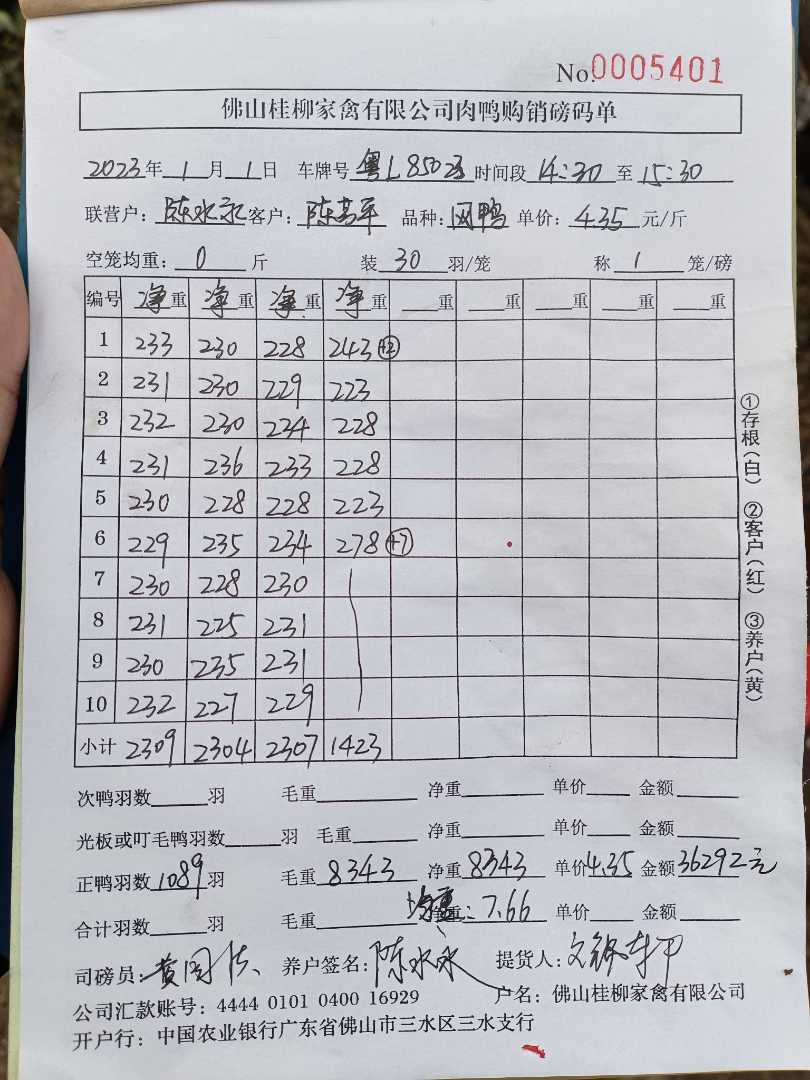 No.0005401
佛山桂柳家禽有限公司肉鸭购销磅码单
2023年1月1日 车牌号粤L850 时间段14:30至15:30
联营户:陈水永 客户:陈高平 品种:网鸭 单价:4.35元/斤
空笼均重:0斤 装30羽/笼 称1笼/磅
编号 净重 净重 净重 净重 重 重 重 重 重
1 233 230 228 243 +2
2 231 230 229 223
3 232 230 234 228
4 231 236 233 228
5 230 228 228 223
6 229 235 234 278 +7
7 230 228 230
8 231 225 231
9 230 235 231
10 232 227 229
小计 2309 2304 2307 1423
①存根(白) ②客户(红) ③养户(黄)
次鸭羽数 羽 毛重 净重 单价 金额
光板或叮毛鸭羽数 羽 毛重 净重 单价 金额
正鸭羽数1089羽 毛重8343 净重8343 单价4.35 金额36292元
合计羽数 羽 毛重 均重:7.66 单价 金额
司磅员:黄 养户签名:陈水永 提货人:
公司汇款账号:4444 0101 0400 16929 户名:佛山桂柳家禽有限公司
开户行:中国农业银行广东省佛山市三水区三水支行